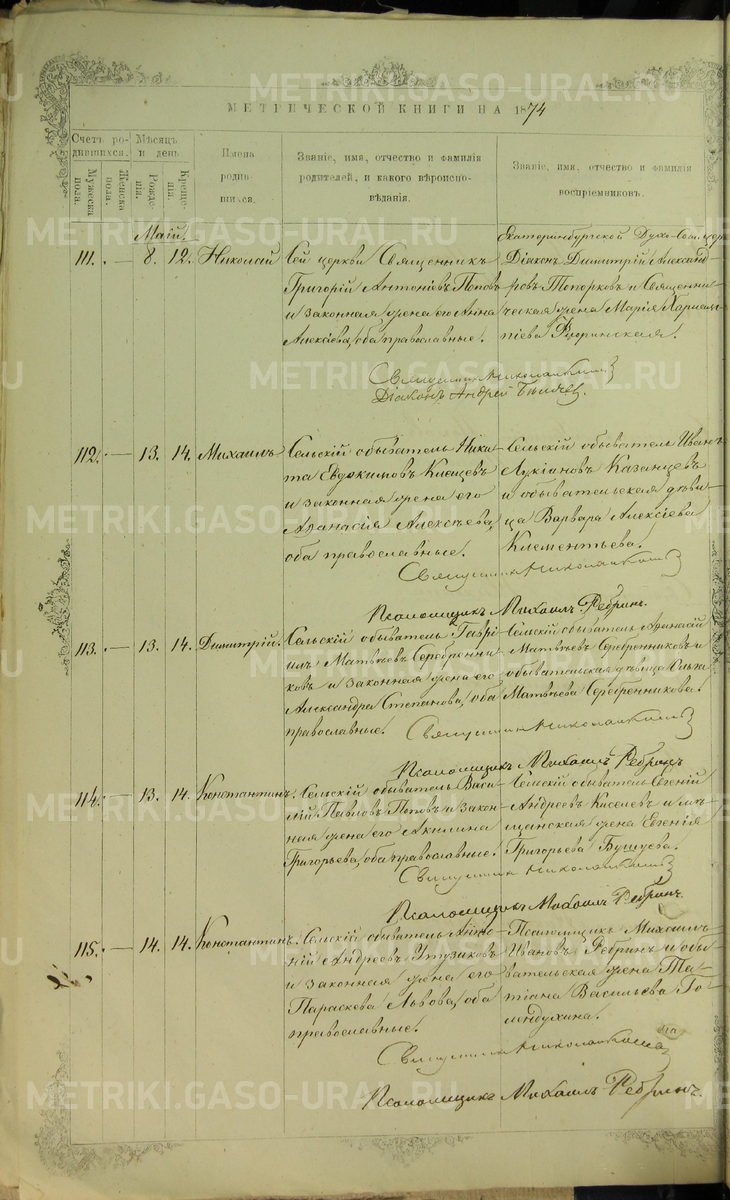 МЕТРИЧЕСКОЙ КНИГИ НА 1874
Счетъ ро-
дившихся.
Мужеска
пола.
Женска
пола.
Мѣсяцъ
и день
Рожде-
нія.
Креще-
нія.
Имена
родив-
шихся.
Званіе, имя, отчество и фамилія
родителей, и какого вѣроиспо-
вѣданія.
Званіе, имя, отчество и фамилія
воспріемниковъ.
Май.
111. — 8. 12. Николай
Сей церкви Священникъ
Григорій Антоновъ Поповъ
и законная жена его Анна
Алексѣева, оба православные.
Екатеринбургской Духо-
Діаконъ Димитрій Александ-
ровъ Топорковъ и Священни-
ческая жена Марія
Флоринская.
Священникъ
Діаконъ Андрей
112. — 13. 14. Михаилъ
Сельскій обыватель Ники-
та Евдокимовъ Клещевъ
и законная жена его
Аѳанасія Алексѣева,
оба православные.
Сельскій обыватель Иванъ
Лукіановъ Казанцевъ
и обывательская дѣви-
ца Варвара Алексіева
Клементьева.
Священникъ
Псаломщикъ Михаилъ Ребринъ.
113. — 13. 14. Димитрій.
Сельскій обыватель Гаврі-
илъ Матвѣевъ Серебренни-
ковъ и законная жена его
Александра Степанова, оба
православные.
Сельскій обыватель Аѳанасій
Матвѣевъ Серебренниковъ и
обывательская дѣвица
Матвѣева Серебренникова.
Священникъ
Псаломщикъ Михаилъ Ребринъ
114. — 13. 14. Константинъ.
Сельскій обыватель Васи-
лій Павловъ Поповъ и закон-
ная жена его Акилина
Григорьева, оба православные.
Сельскій обыватель Евгеній
Андреевъ Киселевъ и мѣ-
щанская жена Евгенія
Григорьева Бушуева.
Священникъ
Псаломщикъ Михаилъ Ребринъ.
115. — 14. 14. Константинъ.
Сельскій обыватель
Андреевъ Утузиковъ
и законная жена его
Параскева Львова, оба
православные.
Псаломщикъ Михаилъ
Ивановъ Ребринъ и обы-
вательская жена Та-
тіана Васильева Го-
лендухина.
Священникъ
Псаломщикъ Михаилъ Ребринъ.
METRIKI.GASO-URAL.RU